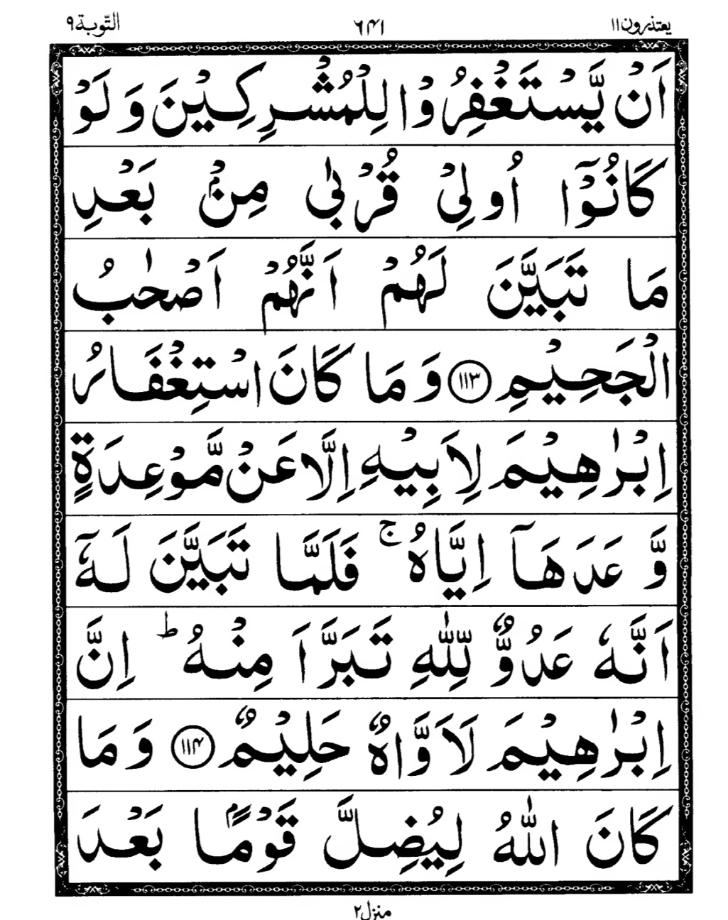 یعتذرون۱۱ ۶۴۱ التّوبة۹
اَنۡ یَّسۡتَغۡفِرُوۡا لِلۡمُشۡرِكِیۡنَ وَ لَوۡ
كَانُوۡۤا اُولِیۡ قُرۡبٰی مِنۡۢ بَعۡدِ
مَا تَبَیَّنَ لَهُمۡ اَنَّهُمۡ اَصۡحٰبُ
الۡجَحِیۡمِ ﴿۱۱۳﴾ وَ مَا كَانَ اسۡتِغۡفَارُ
اِبۡرٰهِیۡمَ لِاَبِیۡهِ اِلَّا عَنۡ مَّوۡعِدَةٍ
وَّعَدَهَاۤ اِیَّاهُ ۚ فَلَمَّا تَبَیَّنَ لَهٗۤ
اَنَّهٗ عَدُوٌّ لِّلّٰهِ تَبَرَّاَ مِنۡهُ ؕ اِنَّ
اِبۡرٰهِیۡمَ لَاَوَّاهٌ حَلِیۡمٌ ﴿۱۱۴﴾ وَ مَا
كَانَ اللّٰهُ لِیُضِلَّ قَوۡمًۢا بَعۡدَ
منزل۲